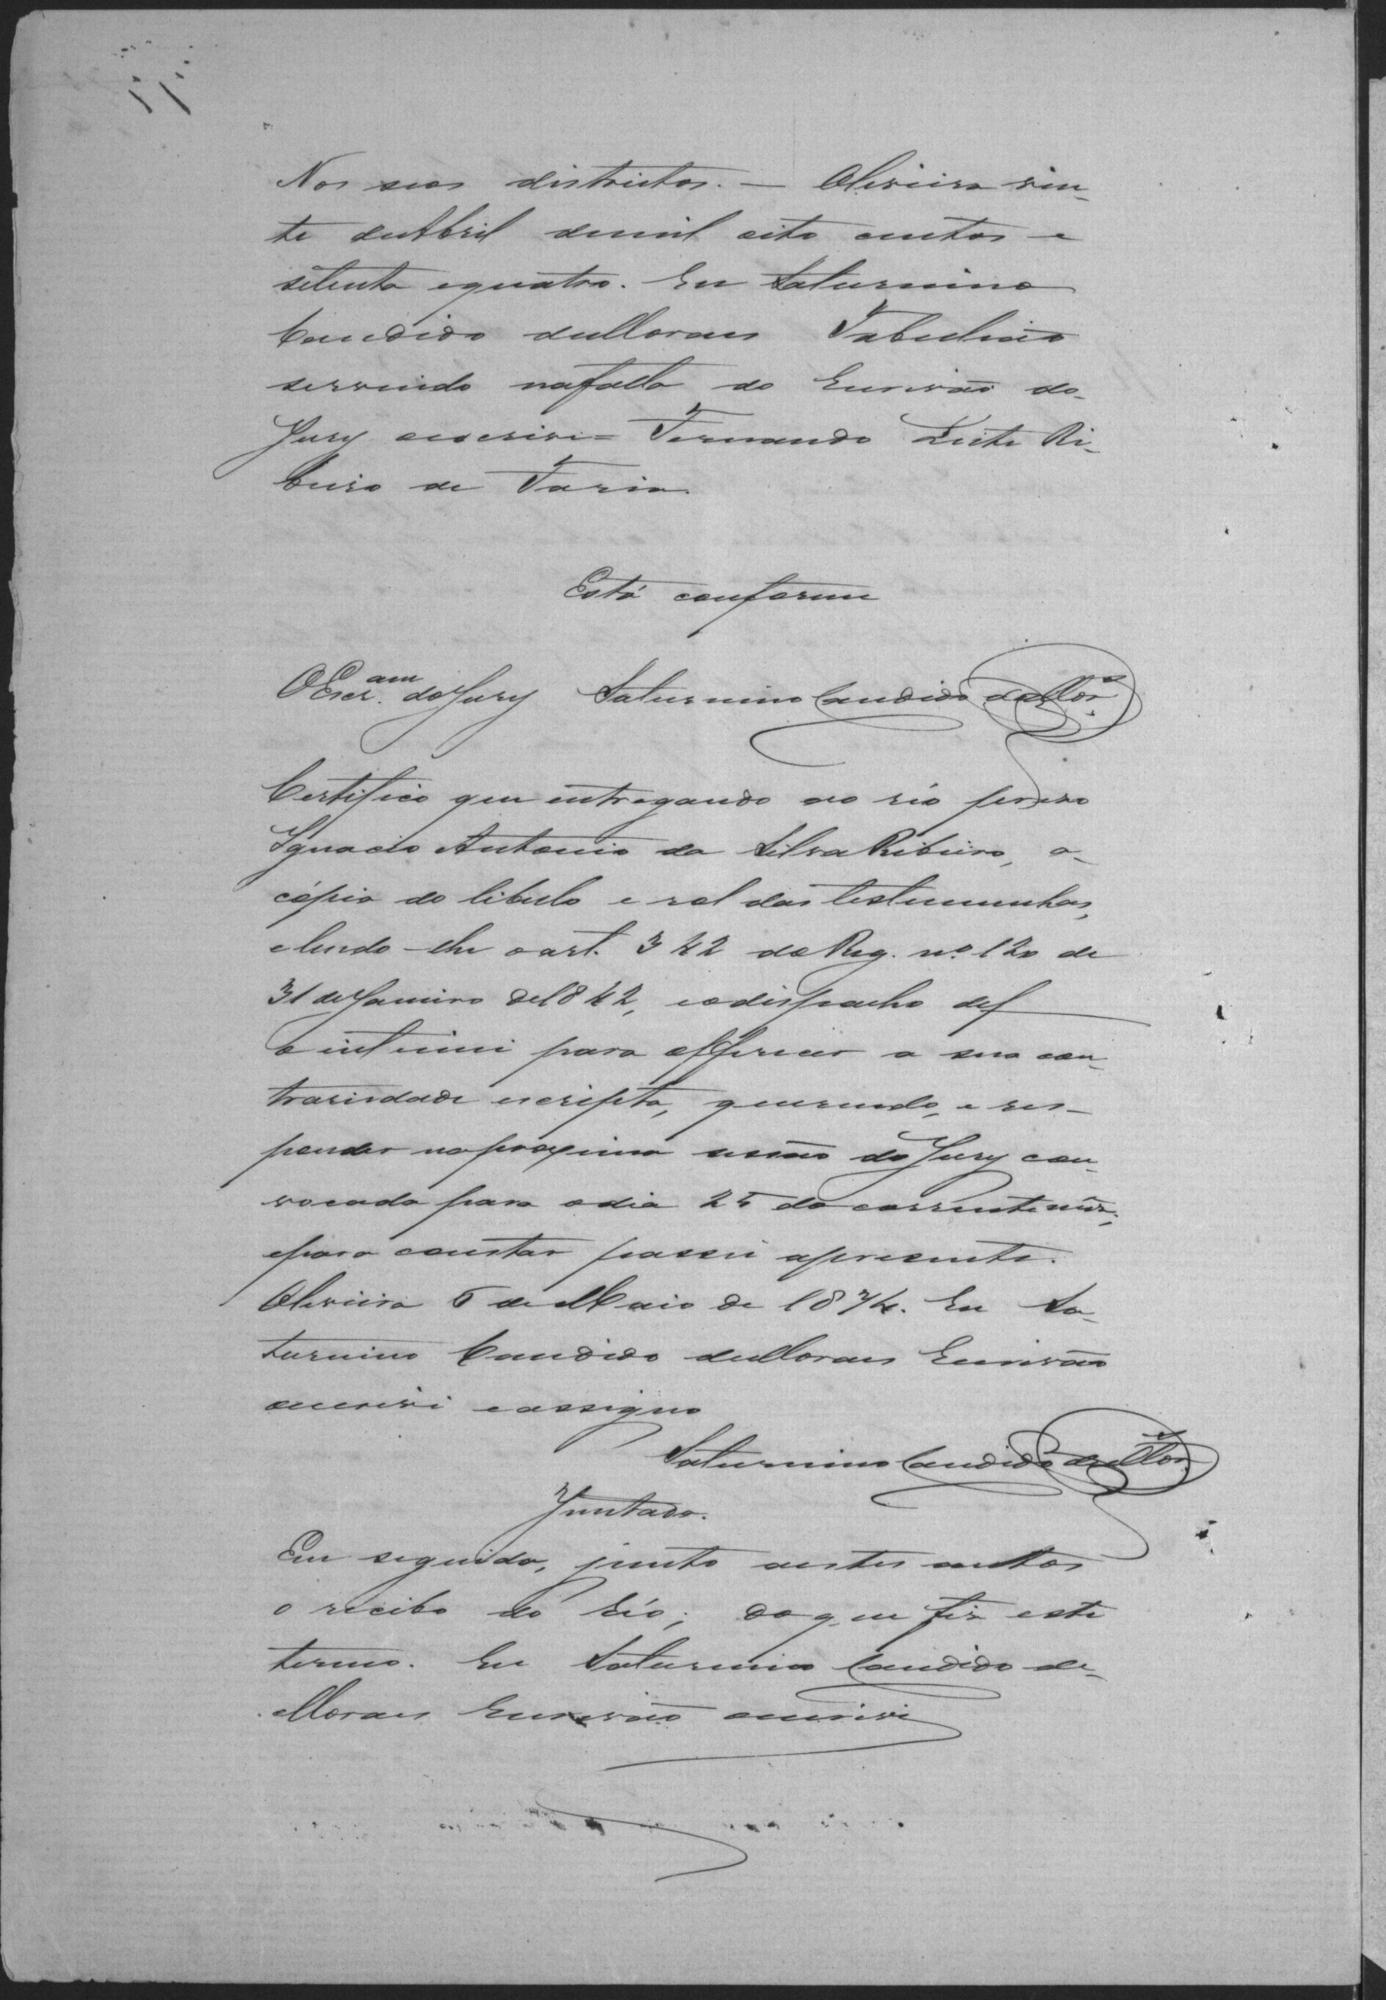 Nos seos districtos. — Oliveira vin-
te de Abril de mil oito centos e
setenta e quatro. Eu Saturnino
Candido de Moraes Tabelião
servindo na falta do Escrivão do
Jury escrivi = Fernando Leite Ri-
beiro de Faria.
Está conforme
O Escr.am do Jury Saturnino Candido de Mor.s
Certifico que entregando ao réo preso
Ignacio Antonio da Silva Ribeiro, a
cópia do libello e rol das testemunhas,
e lendo-lhe o art. 342 do Reg. nº 120 de
31 de Janeiro de 1842, e o despacho de f
o intimei para offerecer a sua con-
trariedade escripta, querendo, e res-
ponder na proxima sessão do Jury con-
vocada para o dia 25 do corrente mez;
e para constar passei a presente.
Oliveira 5 de Maio de 1874. Eu Sa-
turnino Candido de Moraes Escrivão
escrevi e assigno
Saturnino Candido de Mor.s
Juntada.
Em seguida, junto a estes autos
o recibo do réo; do que fiz este
termo. Eu Saturnino Candido de
Moraes Escrivão escrivi